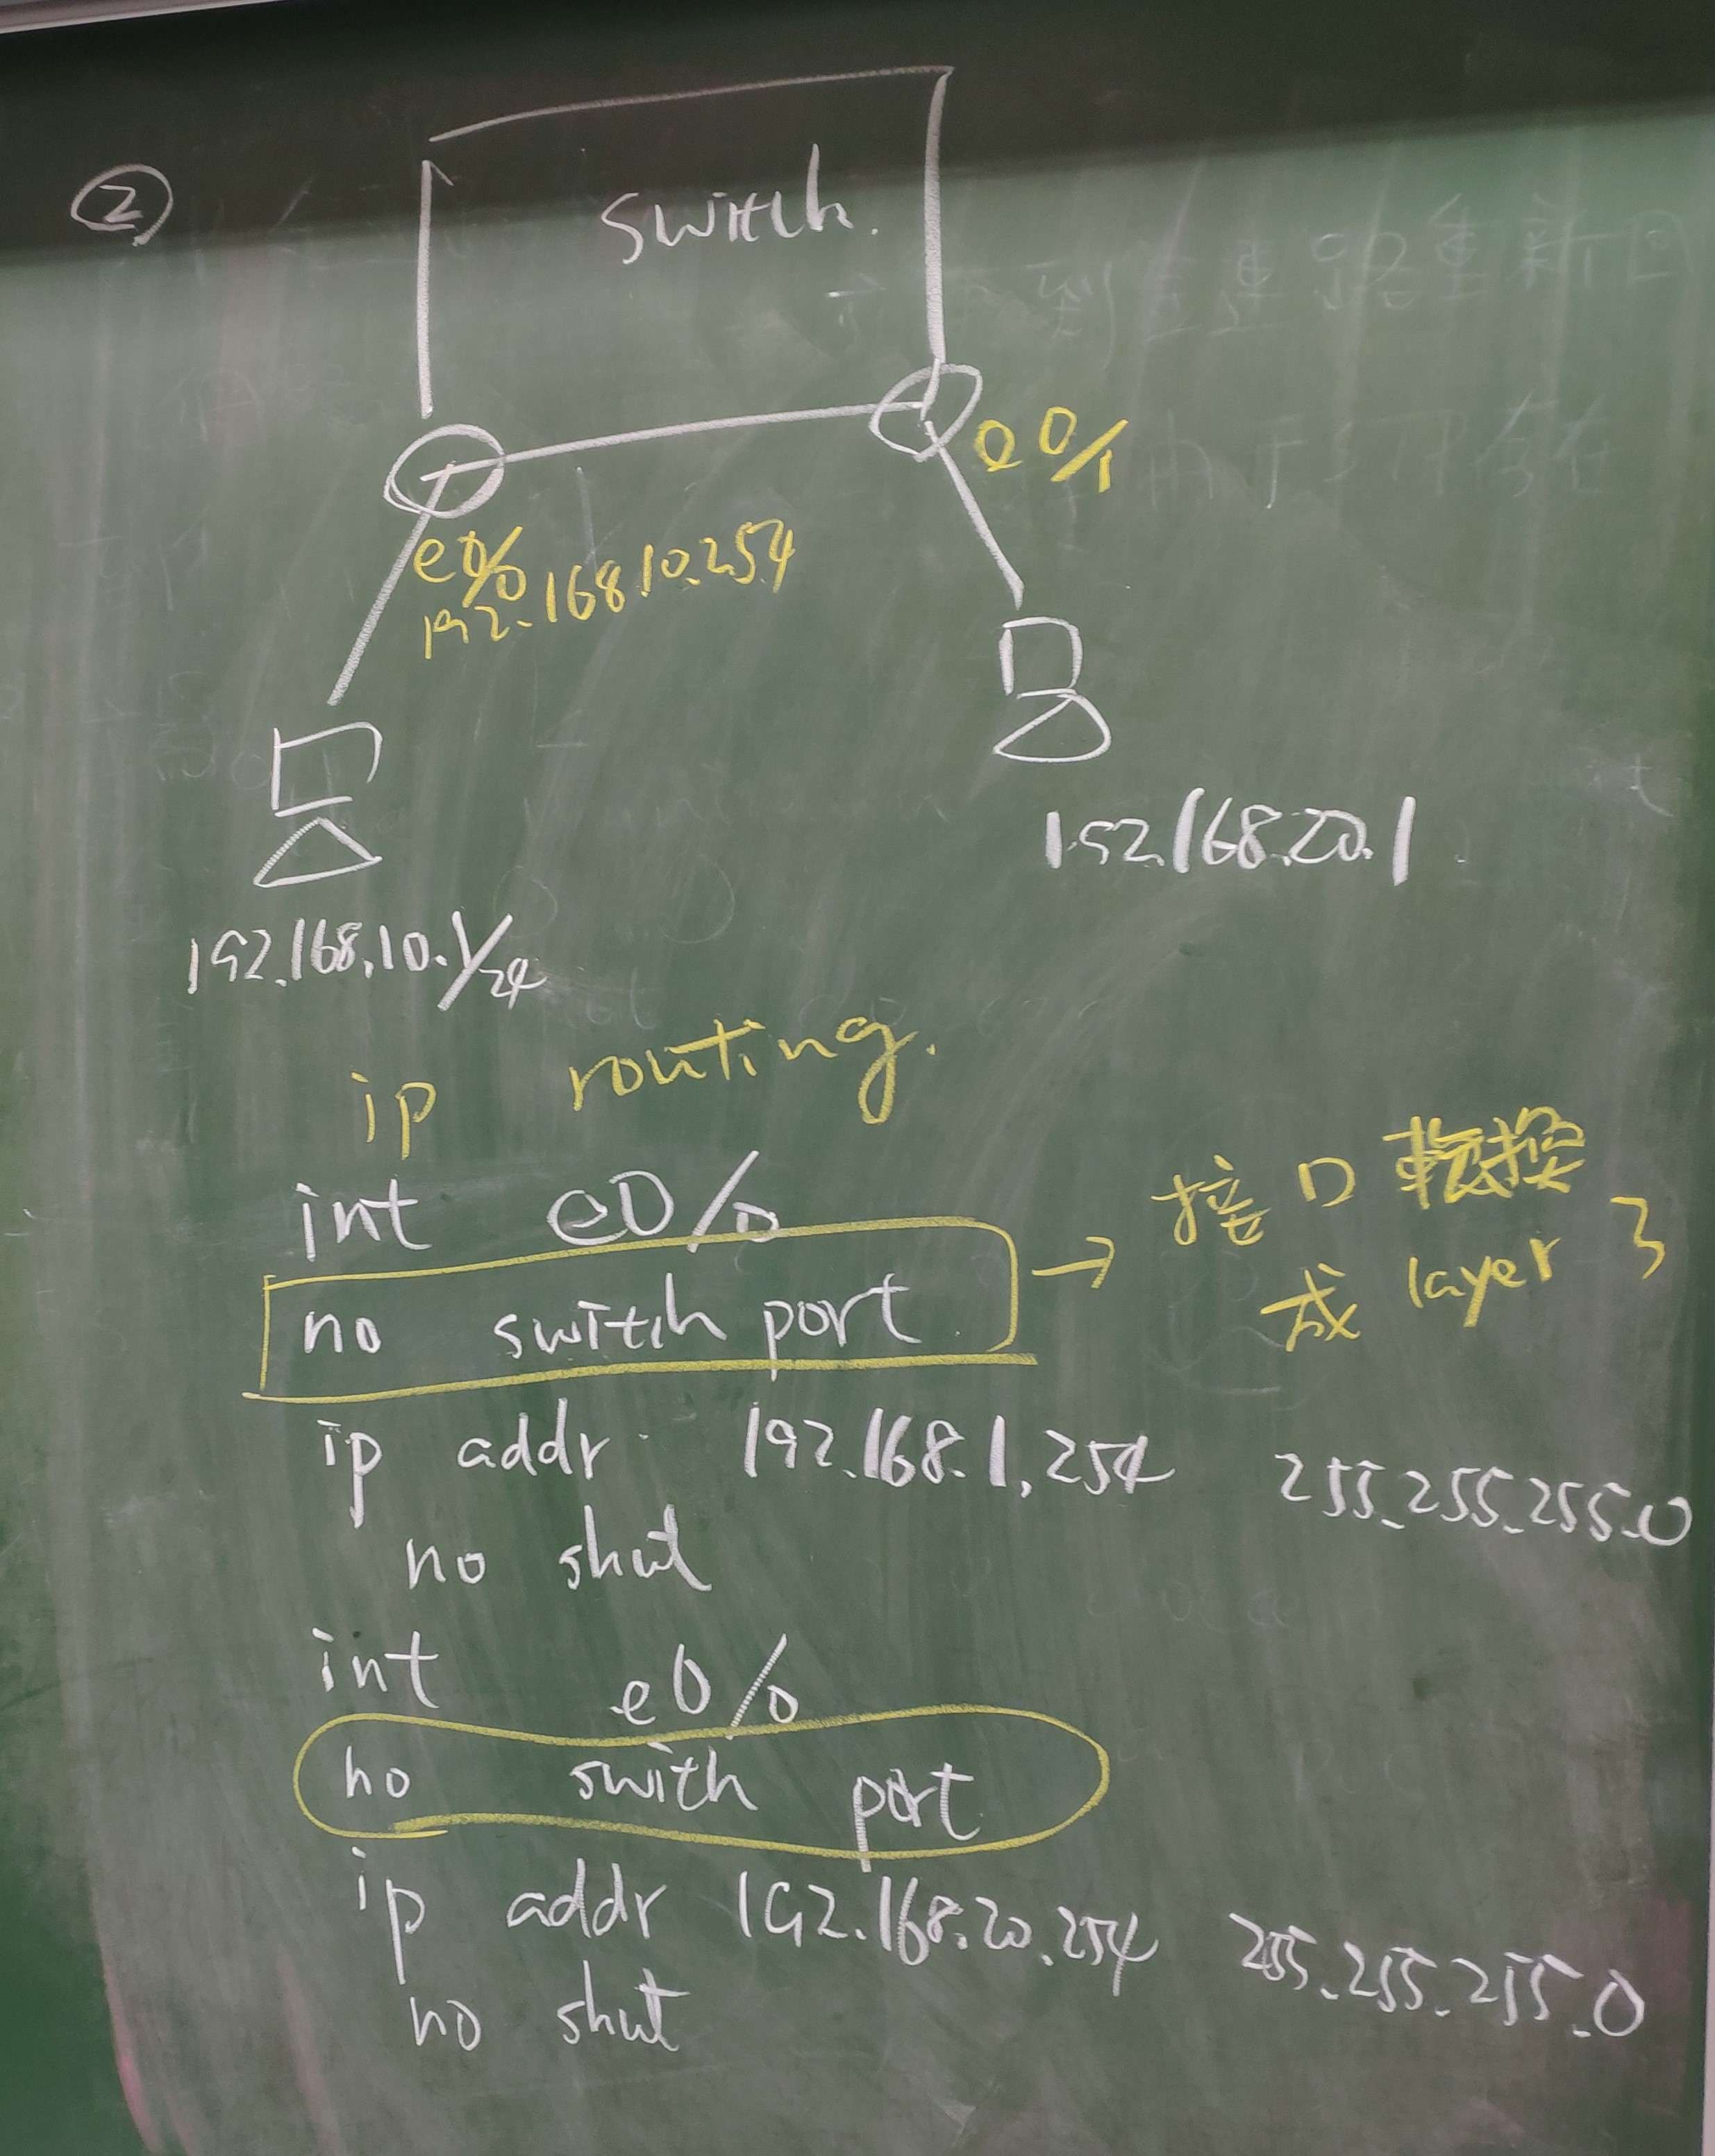 ②
switch.
e0/1
e0/0
192.168.10.254
192.168.20.1
192.168.10.1/24
ip routing.
int e0/0
no switch port → 接口轉換
成 layer 3
ip addr 192.168.1.254 255.255.255.0
no shut
int e0/0
no swith port
ip addr 192.168.20.254 255.255.255.0
no shut